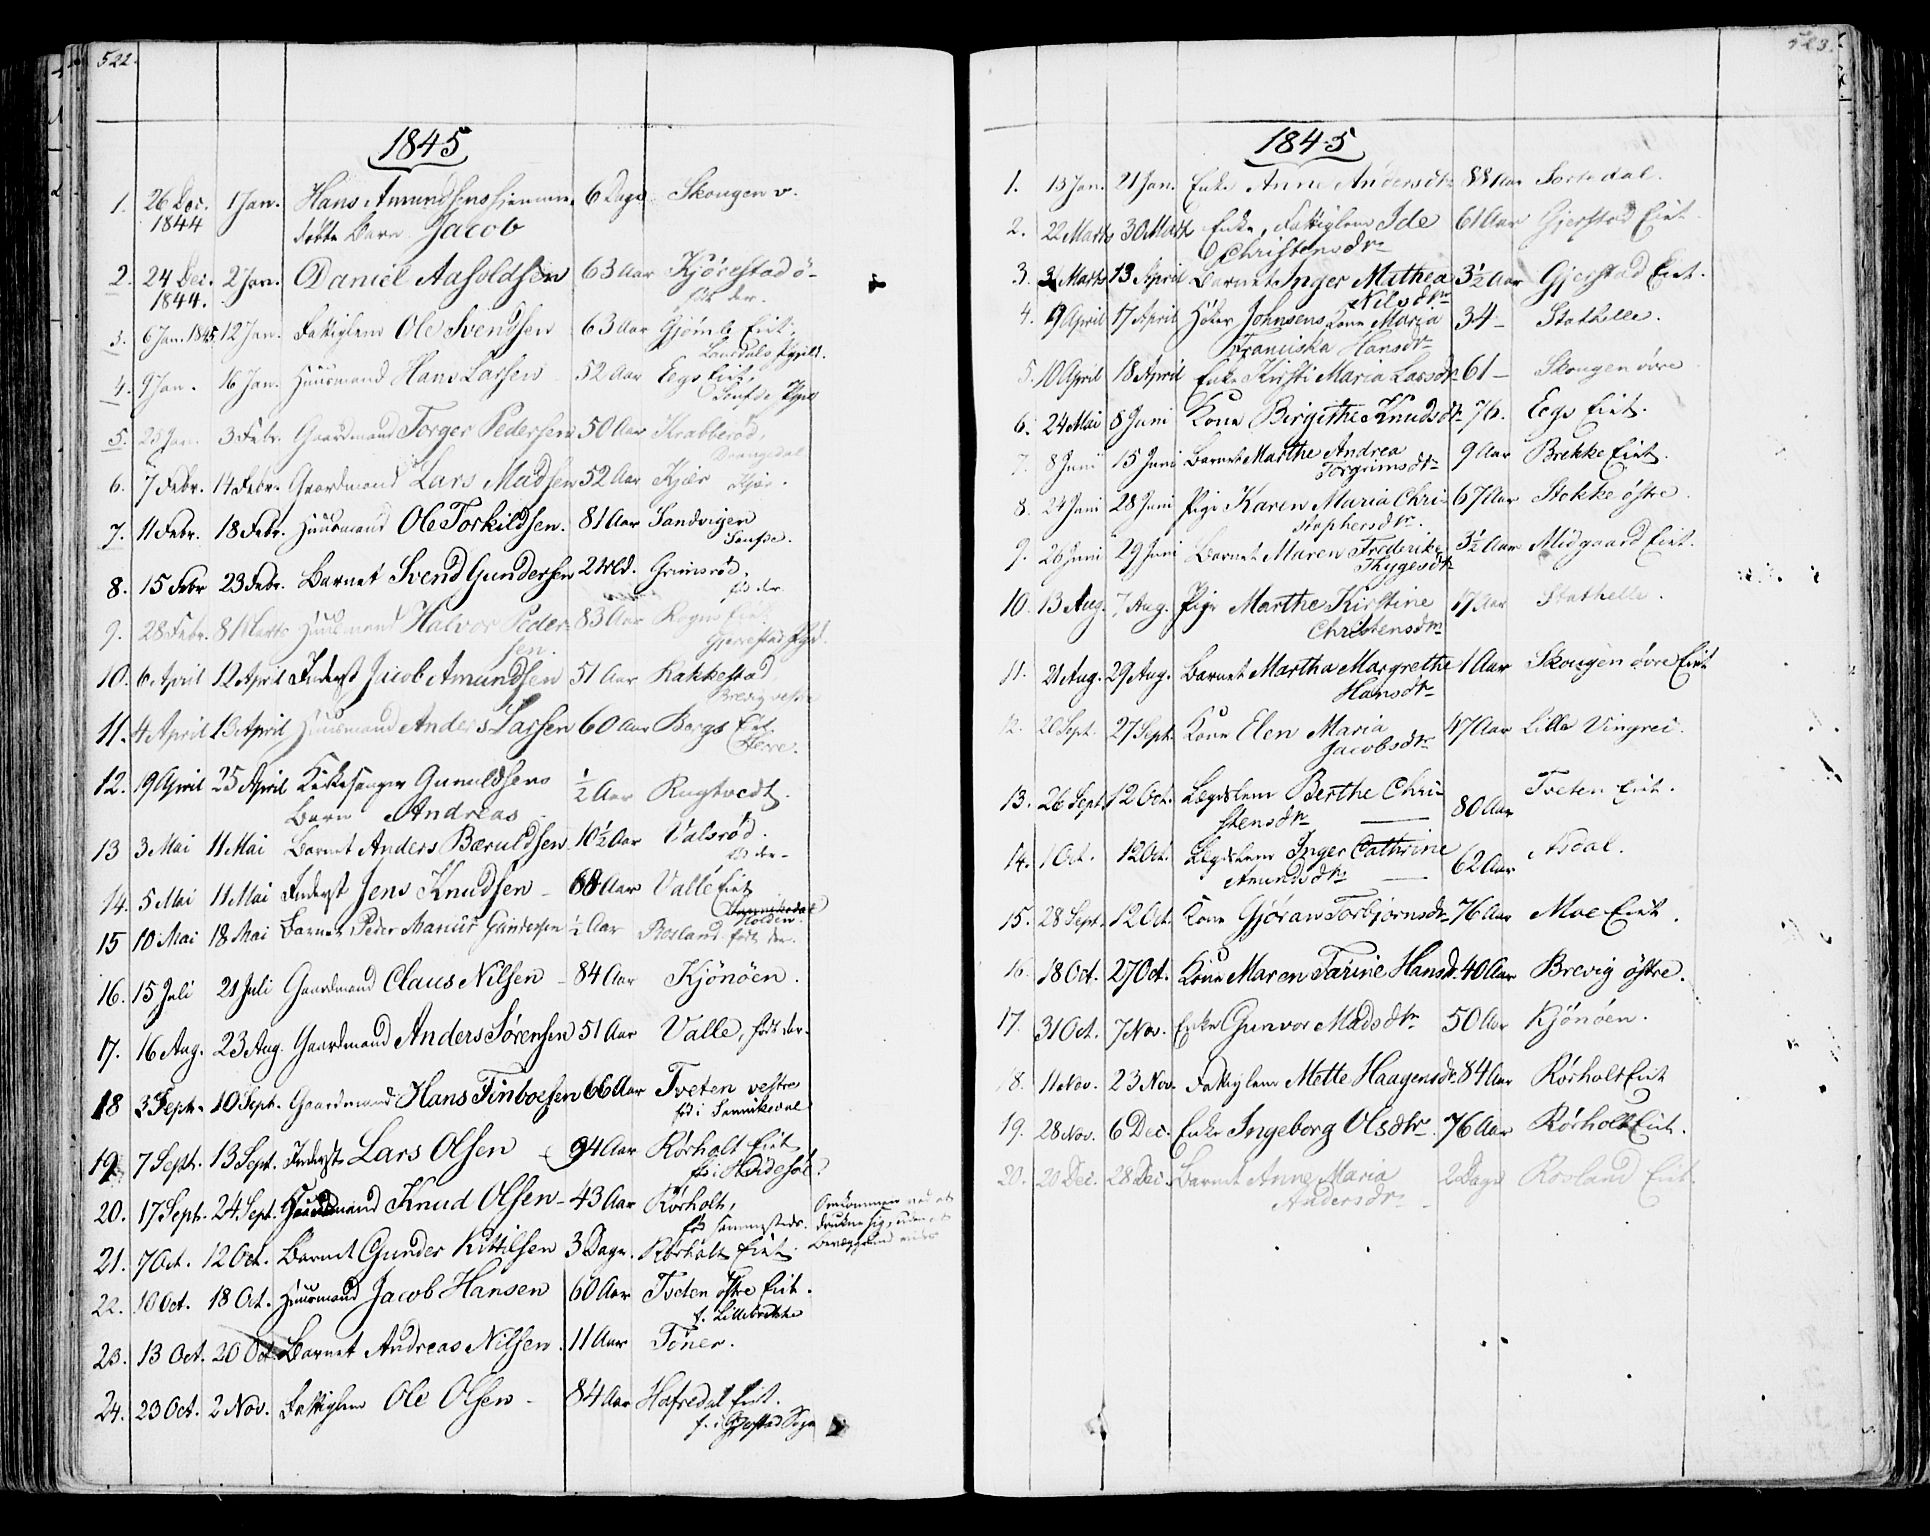 522.
1845
1. 26 Dec. 1 Jan. Hans Amundsens hjemme 6 Dage Skougen v.
1844 døbte Barn Jacob
2. 24 Dec. 2 Jan. Daniel Aasoldsen 63 Aar Kjørestad ø
1844. før der.
3. 6 Jan. 1845 12 Jan. Fattiglem Ole Svendsen 63 Aar Gjømle Eiet.
4. 9 Jan. 16 Jan. Huusmand Hans Larsen 52 Aar Eegs Eiet,
5. 25 Jan. 3 Febr. Gaardmand Torger Pedersen 50 Aar Krabberød,
Drangedal
6. 7 Febr. 14 Febr. Gaardmand Lars Madsen 52 Aar Kjær
7. 11 Febr. 18 Febr. Huusmand Ole Torkildsen. 81 Aar Sandvigen
8. 15 Febr 23 Febr. Barnet Svend Gundersen 2 Grimsrød,
fød der
9. 28 Febr. 8 Marts Huusmand Halvor Peder- 83 Aar Rogns Eiet.
sen.
10. 6 April 12 April Inderst Jacob Amundsen 51 Aar Rakkestad,
Brevig vestre
11. 4 April 13 April Huusmand Anders Larsen 60 Aar Bergs Eiet
12. 19 April 25 April Kirkesanger Gunuldsens 1/2 Aar Rugtvedt.
Barn Andreas
13 3 Mai 11 Mai Barnet Anders Bæruldsen 10 1/2 Aar Valsrød.
fød der
14. 5 Mai 11 Mai Inderst Jens Knudsen - 68 Aar Valle Eiet
Holden
15 10 Mai 18 Mai Barnet Peder Marius Gundersen 1/2 Aar Rosland født der.
16. 15 Juli 21 Juli Gaardmand Claus Nilsen - 84 Aar Kjönöen.
17. 16 Aug. 23 Aug. Gaardmand Anders Sørensen 51 Aar Valle, født der
18 3 Sept. 10 Sept. Gaardmand Hans Finboesen 66 Aar Tveten vestre
fød i Sannikedal
19. 7 Sept. 13 Sept. Inderst Lars Olsen 94 Aar Rörholt Eiet
20. 17 Sept. 24 Sept. Gaardmand Knud Olsen - 43 Aar Rörholt,
fød sammesteds. Omkommen ved at
drukne sig, uden at
21. 7 Oct. 12 Oct. Barnet Gunder Kittilsen 3 Dage. Rörholt Eiet.
22. 10 Oct. 18 Oct. Huusmand Jacob Hansen 60 Aar Tveten östre Eiet.
f. Lillebrekke
23. 13 Oct. 20 Oct Barnet Andreas Nilsen. 11 Aar Töner.
24. 23 Oct. 2 Nov. Fattiglem Ole Olsen - 84 Aar Hafredal Eiet.
f. i Gjerstad Sogn
523.
1845
1. 13 Jan. 21 Jan. Enke Anne Andersdtr 88 Aar Sortedal.
2. 22 Marts 30 Marts Enke, Fattiglem Ide 61 Aar Gjerstad Eiet
Christensdtr
3. 31 Marts 13 April Barnet Inger Mathea 3 1/2 Aar Gjerstad Eiet.
Nilsdtr
4. 9 April 17 April Johnsens Kone Maria 34 - Stathelle.
Franciska Hansdtr
5. 10 April 18 April Enke Kirsti Maria Larsdtr 61 - Skougen övre
6. 24 Mai 8 Juni Kone Birgithe Knudsdtr 76. Eegs Eiet.
7. 8 Juni 15 Juni Barnet Marthe Andrea 9 Aar Brekke Eiet.
Torgrimsdtr
8. 24 Juni 28 Juni Pige Karen Maria Chri- 67 Aar Stokke östre.
stophersdtr.
9. 26 Juni 29 Juni Barnet Maren Frederike 3 1/2 Aar Midgaard Eiet.
Thygesdtr
10. 13 Aug. 7 Aug. Pige Marthe Kirstine 17 Aar Stathelle.
Christensdtr
11. 21 Aug. 29 Aug. Barnet Martha Margrethe 1 Aar Skougen övre Eiet
Hansdtr
12. 20 Sept. 27 Sept. Kone Elen Maria 47 Aar Lille Vingrei.
Jacobsdtr
13. 26 Sept. 12 Oct. Lægdslem Berthe Chri- 80 Aar Tveten Eiet.
stensdtr
14. 1 Oct. 12 Oct. Lægdslem Inger Cathrine 62 Aar Asdal.
Amundsdtr
15. 28 Sept. 12 Oct. Kone Gjöran Torbjørnsdtr 76 Aar Moe Eiet.
16. 18 Oct. 27 Oct. Kone Maren Tarine Hansd. 40 Aar Brevig östre.
17. 31 Oct. 7 Nov. Enke Gunvor Madsdtr 50 Aar Kjönöen.
18. 11 Nov. 23 Nov. Fattiglem Mette Haagensd. 84 Aar Rörholt Eiet
19. 28 Nov. 6 Dec. Enke Ingeborg Olsdtr. 76 Aar Rörholt Eiet.
20. 20 Dec. 28 Dec. Barnet Anne Maria 2 Dage Rosland Eiet.
Andersdtr